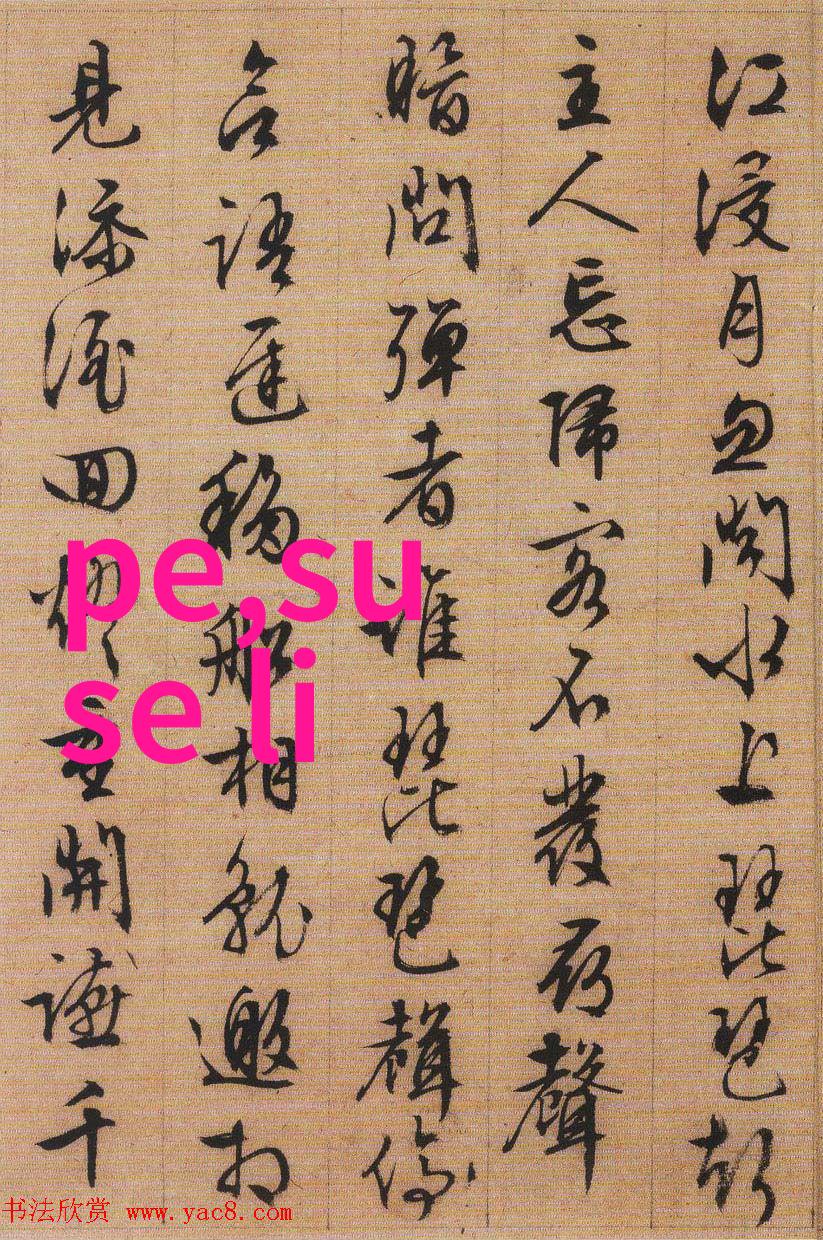 江浸月忽聞水上琵琶
主人忘歸客不發尋聲
暗問彈者誰琵琶聲停
語遲移船相就邀相
見添酒回燈重開讌千
pe,su
se li
书法欣赏 www.yac8.com